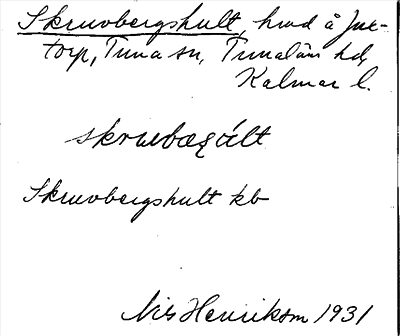 Skruvbergshult, hmd å Jut-
torp, Tuna sn, Tunaläns hd,
Kalmar l.
skruvbæꞡúlt
Skruvbergshult kb
Nils Henrikson 1931